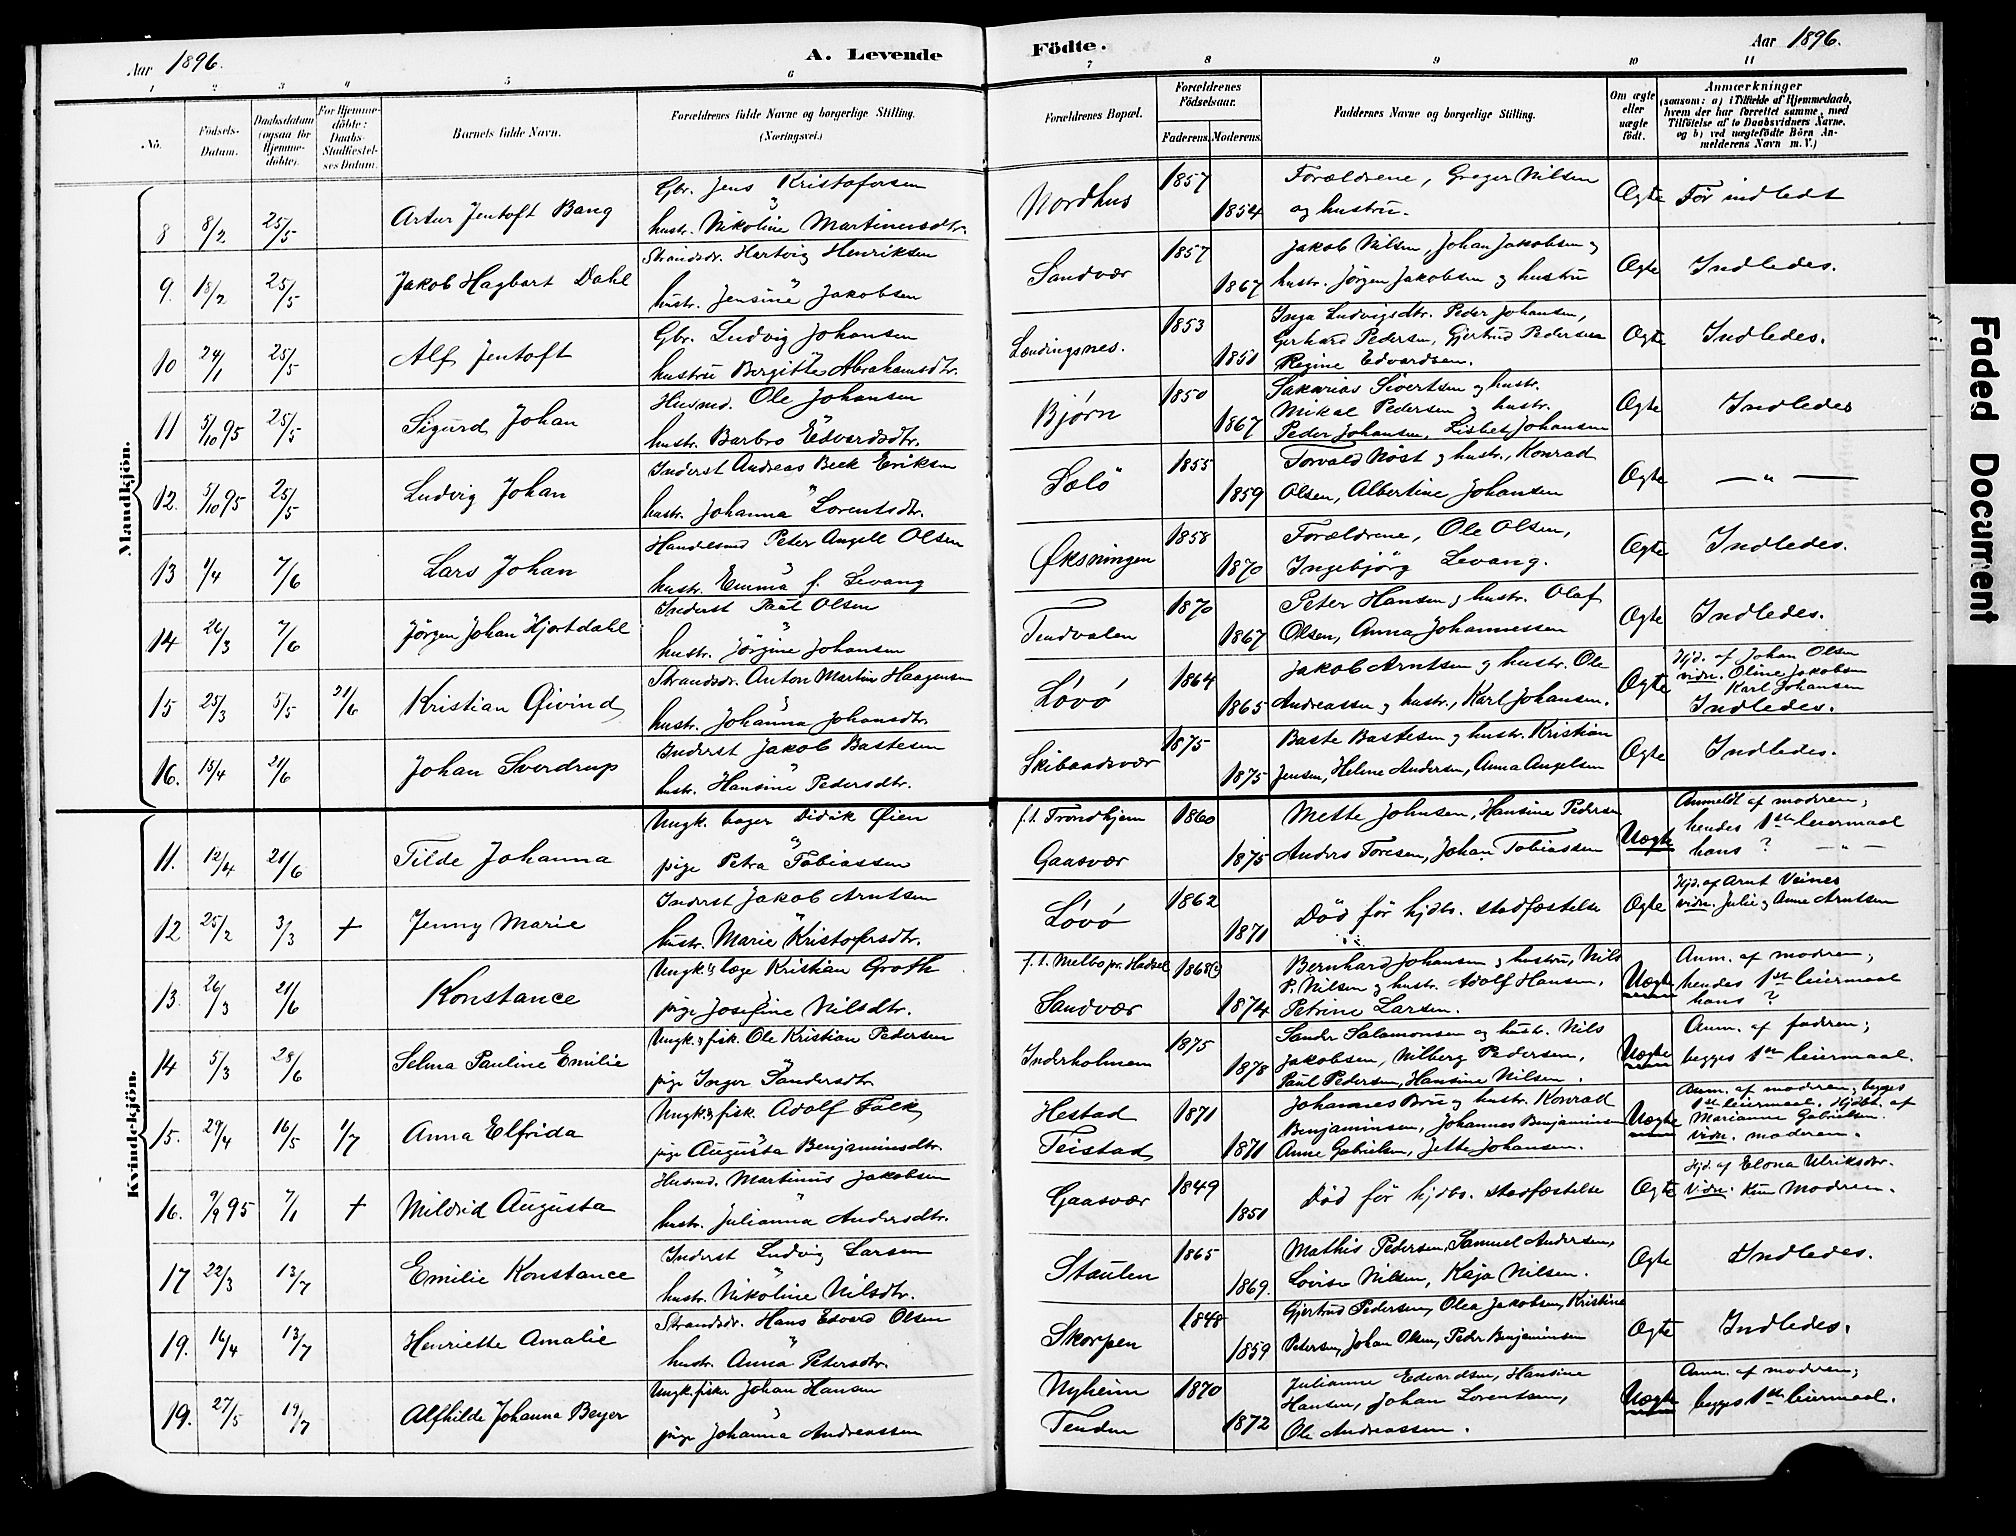 Aar 1896.
A. Levende
Födte.
Aar 1896.
1 2 3 4 5 6 7 8 9 10 11
No.
Födsels-Datum.
Daabsdatum (ogsaa for Hjemmedöbte).
For Hjemmedöbte: Daabs-Stadfæstelses Datum.
Barnets fulde Navn.
Forældrenes fulde Navne og borgerlige Stilling.
(Næringsvei.)
Forældrenes Bopæl.
Forældrenes Födselsaar.
Faderens. Moderens.
Faddernes Navne og borgerlige Stilling.
Om ægte eller uægte födt.
Anmærkninger
(saasom: a) i Tilfælde af Hjemmedaab, hvem der har forrettet samme, med Tilföielse af to Daabsvidners Navne, og b) ved uægtefödte Börn Anmelderens Navn m. V.)
Mandkjön.
8 8/2 25/5 Artur Jentoft Bang
Gbr. Jens Kristofersen
hustr. Nikoline Martinusdtr.
Nordhus 1857 1854
Forældrene, Greger Nilsen
og hustru.
Ægte Før indledt
9. 15/2 25/5 Jakob Hagbart Dahl
Strandsdr. Hartvig Henriksen
hustr. Jensine Jakobsen
Sandvær 1857 1867
Jakob Nilsen, Johan Jakobsen og
hustr. Jørgen Jakobsen og hustru
Ægte Indledes.
10 24/1 25/5 Alf Jentoft
Gbr. Ludvig Johansen
hustru Bergitte Abrahamsdtr.
Lændingsnes. 1853 1851
Inga Ludvigsdtr. Peder Johansen,
Gerhard Pedersen, Gjertrud Pedersen
Regine Edvardsen.
Ægte Indledes.
11 5/10 95 25/5 Sigurd Johan
Husmd. Ole Johansen
hustr. Barbro Edvardsdtr.
Bjørn 1850 1867
Sakarias Sivertsen og hustr.
Mikal Pedersen og hustr.
Peder Johansen, Lisbet Johansen
Ægte Indledes
12. 5/10 95 25/5 Ludvig Johan
Inderst Andreas Beck Eriksen
hustr. Johanna Lorentsdtr.
Sølö 1855 1859
Torvald Nöst og hustr., Konrad
Olsen, Albertine Johansen
Ægte — " —
13 1/4 7/6 Lars Johan
Handelsmd Peter Angell Olsen
hustr. Emma f. Levang
Øksningen 1858 1870
Forældrene, Ole Olsen,
Ingebjörg Levang.
Ægte Indledes.
14 26/3 7/6 Jörgen Johan Hjortdahl
Inderst Paul Olsen
hustr. Jörgine Johansen
Tendvalen 1870 1867
Peter Hansen og hustr. Olaf
Olsen, Anna Johannessen
Ægte Indledes.
15 25/3 5/5 21/6 Kristian Øivind
Strandsdr. Anton Martin Haagensen
hustr. Johanna Johansdtr.
Løvö 1864 1865
Jakob Arntsen og hustr. Ole
Andreassen og hustr., Karl Johansen.
Ægte
Hjd. af Johan Olsen
vidn. Oline Jakobsen
Karl Johansen
Indledes.
16. 15/4 21/6 Johan Sverdrup
Inderst Jakob Bastesen
hustr. Hansine Pedersdtr.
Skibaadsvær 1875 1875
Baste Bastesen og hustr. Kristian
Jensen, Heline Andersen, Anna Angelsen
Ægte Indledes.
Kvindekjön.
11. 12/4 21/6 Tilde Johanna
Ungk. bager Didrik Øien
pige Petra Tobiassen
f. t. Trondhjem
Gaasvær 1860 1875
Mette Johnsen, Hansine Pedersen
Anders Toresen, Johan Tobiassen
Uægte
Anmeldt af modren;
hendes 1ste leiermaal
hans ? — " —
12 25/2 3/3 + Jenny Marie
Inderst Jakob Arntsen
hustr. Marie Kristofersdtr.
Løvö 1862 1871
Død før hjdb. stadfæstelse
Ægte
Hjd. af Arnt Veines
vidn. Julie og Anne Arntsen
13. 26/3 21/6 Konstance
Ungk. læge Kristian Groth
pige Josefine Nilsdtr.
f. t. Melbo pr. Hadsel
Sandvær 1868(?) 1874
Bernhard Johansen og hustru, Nils
P. Nilsen og hustr. Adolf Hansen,
Petrine Larsen.
Uægte
Anm. af modren;
hendes 1ste leiermaal
hans ?
14 5/3 28/6 Selma Pauline Emilie
Ungk. fisk. Ole Kristian Pedersen
pige Inger Sandersdtr
Inderholmen 1875 1878
Sander Salamonsen og hustr. Nils
Jakobsen, Nilberg Pedersen,
Paul Pedersen, Hansine Nilsen.
Uægte
Anm. af fadren;
begges 1ste leiermaal.
15. 29/4 16/5 1/7 Anna Elfrida
Ungk. fisk. Adolf Falk
pige Augusta Benjaminsdtr.
Hestad
Teistad 1871 1871
Johannes Bru og hustr. Konrad
Benjaminsen, Johannes Benjaminsen
Anne Gabrielsen, Jette Johansen.
Uægte
Anm. af modren; begges
1ste leiermaal. Hjdb. af
Marianne Gabrielsen
vidn. moderen.
16. 9/9 95 7/1 + Mildrid Augusta
Husmd. Martinus Jakobsen
hustr. Julianna Andersdtr.
Gaasvær 1849 1851
Død før hjdb. stadfæstelse
Ægte
Hjd. af Elona Ulriksdtr.
Vidn. kun Modren.
17 22/3 13/7 Emilie Konstance
Inderst Ludvig Larsen
hustr. Nikoline Nilsdtr.
Staulen 1865 1869.
Mathis Pedersen, Samuel Andersen,
Lovise Nilsen, Kaja Nilsen.
Ægte Indledes.
19. 16/4 13/7 Henriette Amalie
Strandsdr. Hans Edvard Olsen
hustr. Anna Petersdtr.
Skorpen 1848 1859
Gjertrud Pedersen, Olea Jakobsen, Kristine
Petersen, Johan Olsen, Peder Benjaminsen
Ægte Indledes.
19. 27/5 19/7 Alfhilde Johanna Beyer
Ungk. fisker Johan Hansen
pige Johanna Andreassen
Nyheim
Tenden 1870 1872
Julianne Edvardsen, Hansine
Hansen, Johan Lorentsen,
Ole Andreassen.
Uægte
Anm. af modren;
begges 1ste leiermaal.
Faded Document